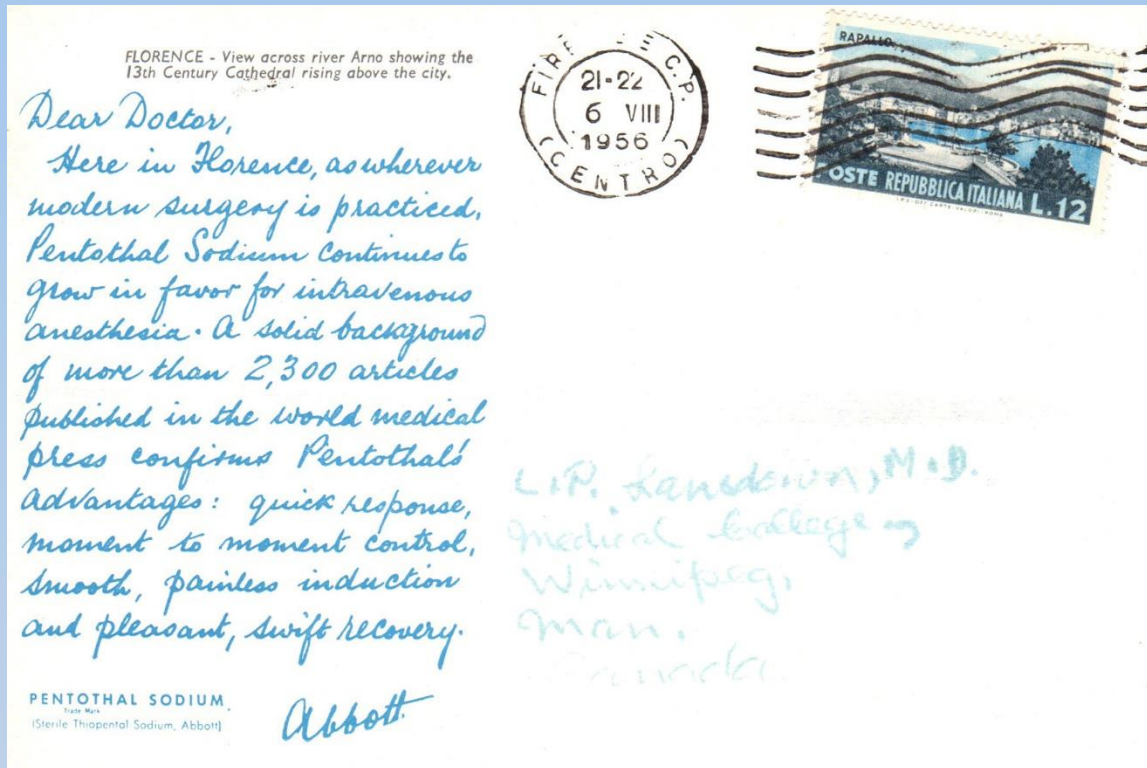 FLORENCE - View across river Arno showing the
13th Century Cathedral rising above the city.
Dear Doctor,
Here in Florence, as wherever
modern surgery is practiced,
Pentothal Sodium continues to
grow in favor for intravenous
anesthesia. A solid background
of more than 2,300 articles
published in the world medical
press confirms Pentothal's
advantages: quick response,
moment to moment control,
smooth, painless induction
and pleasant, swift recovery.
PENTOTHAL SODIUM
Trade Mark
(Sterile Thiopental Sodium, Abbott)
Abbott
C.P.
21-22
6 VIII
1956
(CENTRO)
RAPALLO
OSTE REPUBBLICA ITALIANA L.12
L.P. Lansdown, M.D.
Medical College
Winnipeg,
Man.
Canada